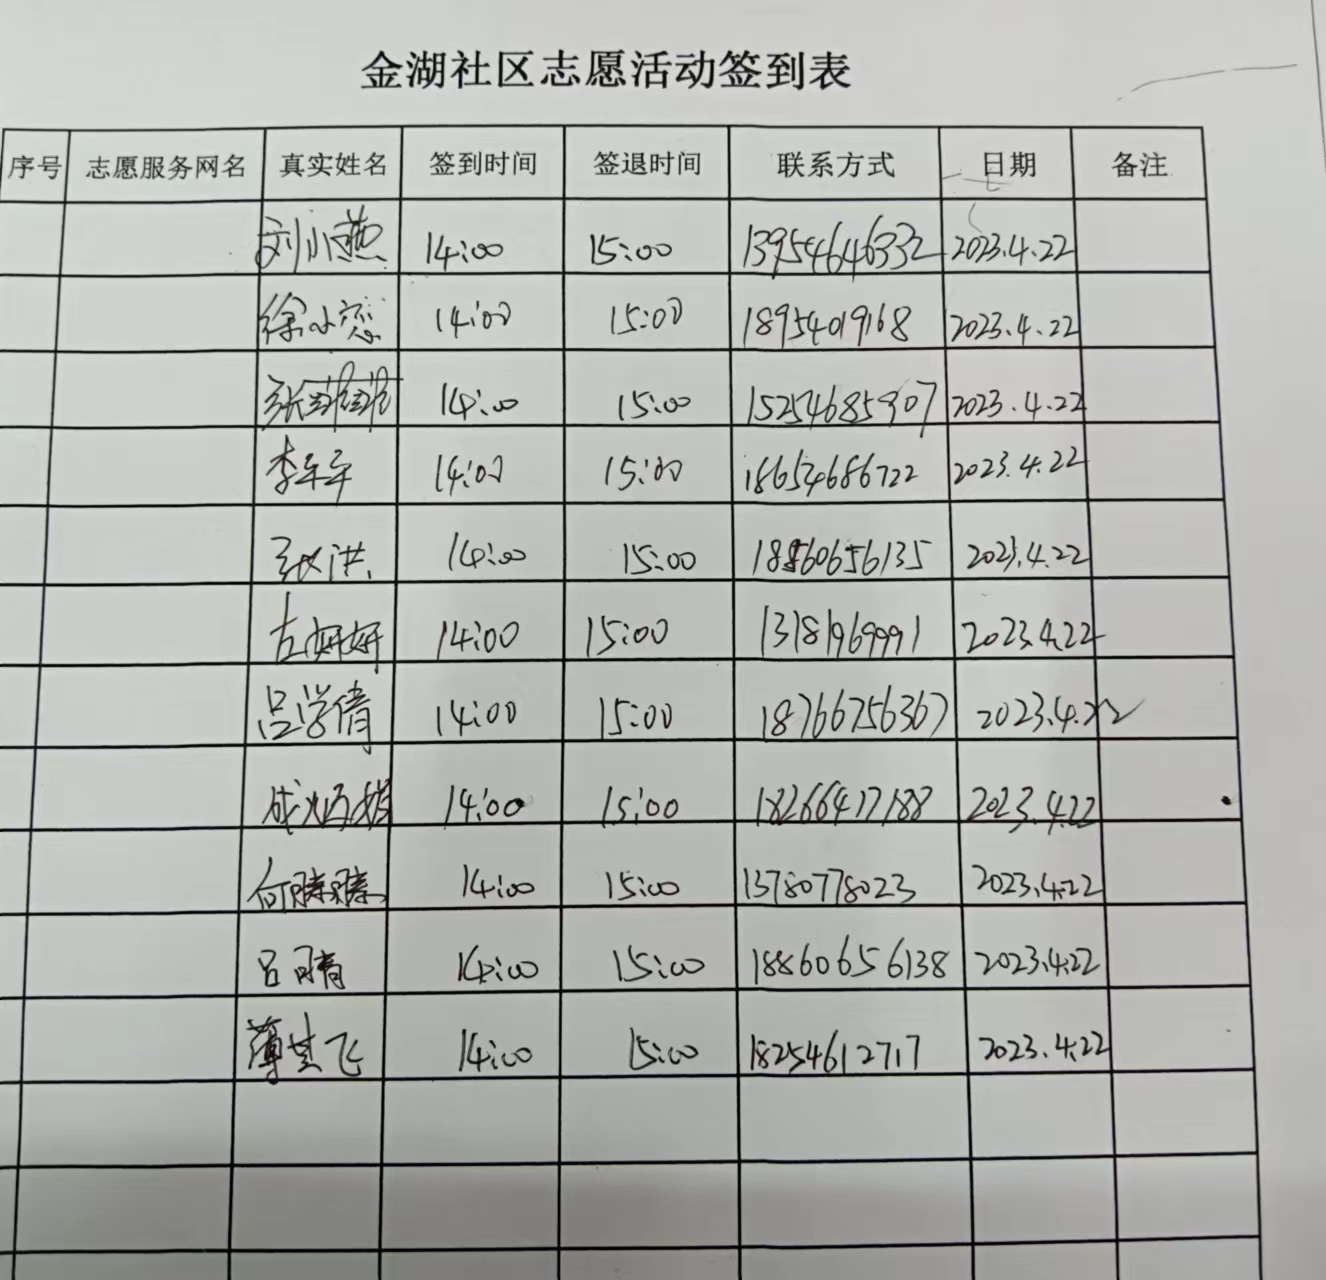 金湖社区志愿活动签到表
序号 志愿服务网名 真实姓名 签到时间 签退时间 联系方式 日期 备注
刘小燕 14:00 15:00 13954646332 2023.4.22
徐小恋 14:00 15:00 18954019168 2023.4.22
张菲菲 14:00 15:00 15254685907 2023.4.22
李军军 14:00 15:00 18654686722 2023.4.22
张洪 14:00 15:00 18560656135 2023.4.22
左妍妍 14:00 15:00 13181969991 2023.4.22
吕学倩 14:00 15:00 18766756367 2023.4.22
14:00 15:00 18266417188 2023.4.22
何腾腾 14:00 15:00 13780778023 2023.4.22
吕晴 14:00 15:00 18860656138 2023.4.22
薄其飞 14:00 15:00 18254612717 2023.4.22